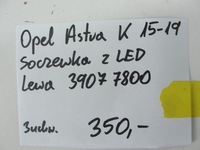 Opel Astra K 15-19
Soczewka z LED
Lewa 3907 7800
3uchw. 350,-